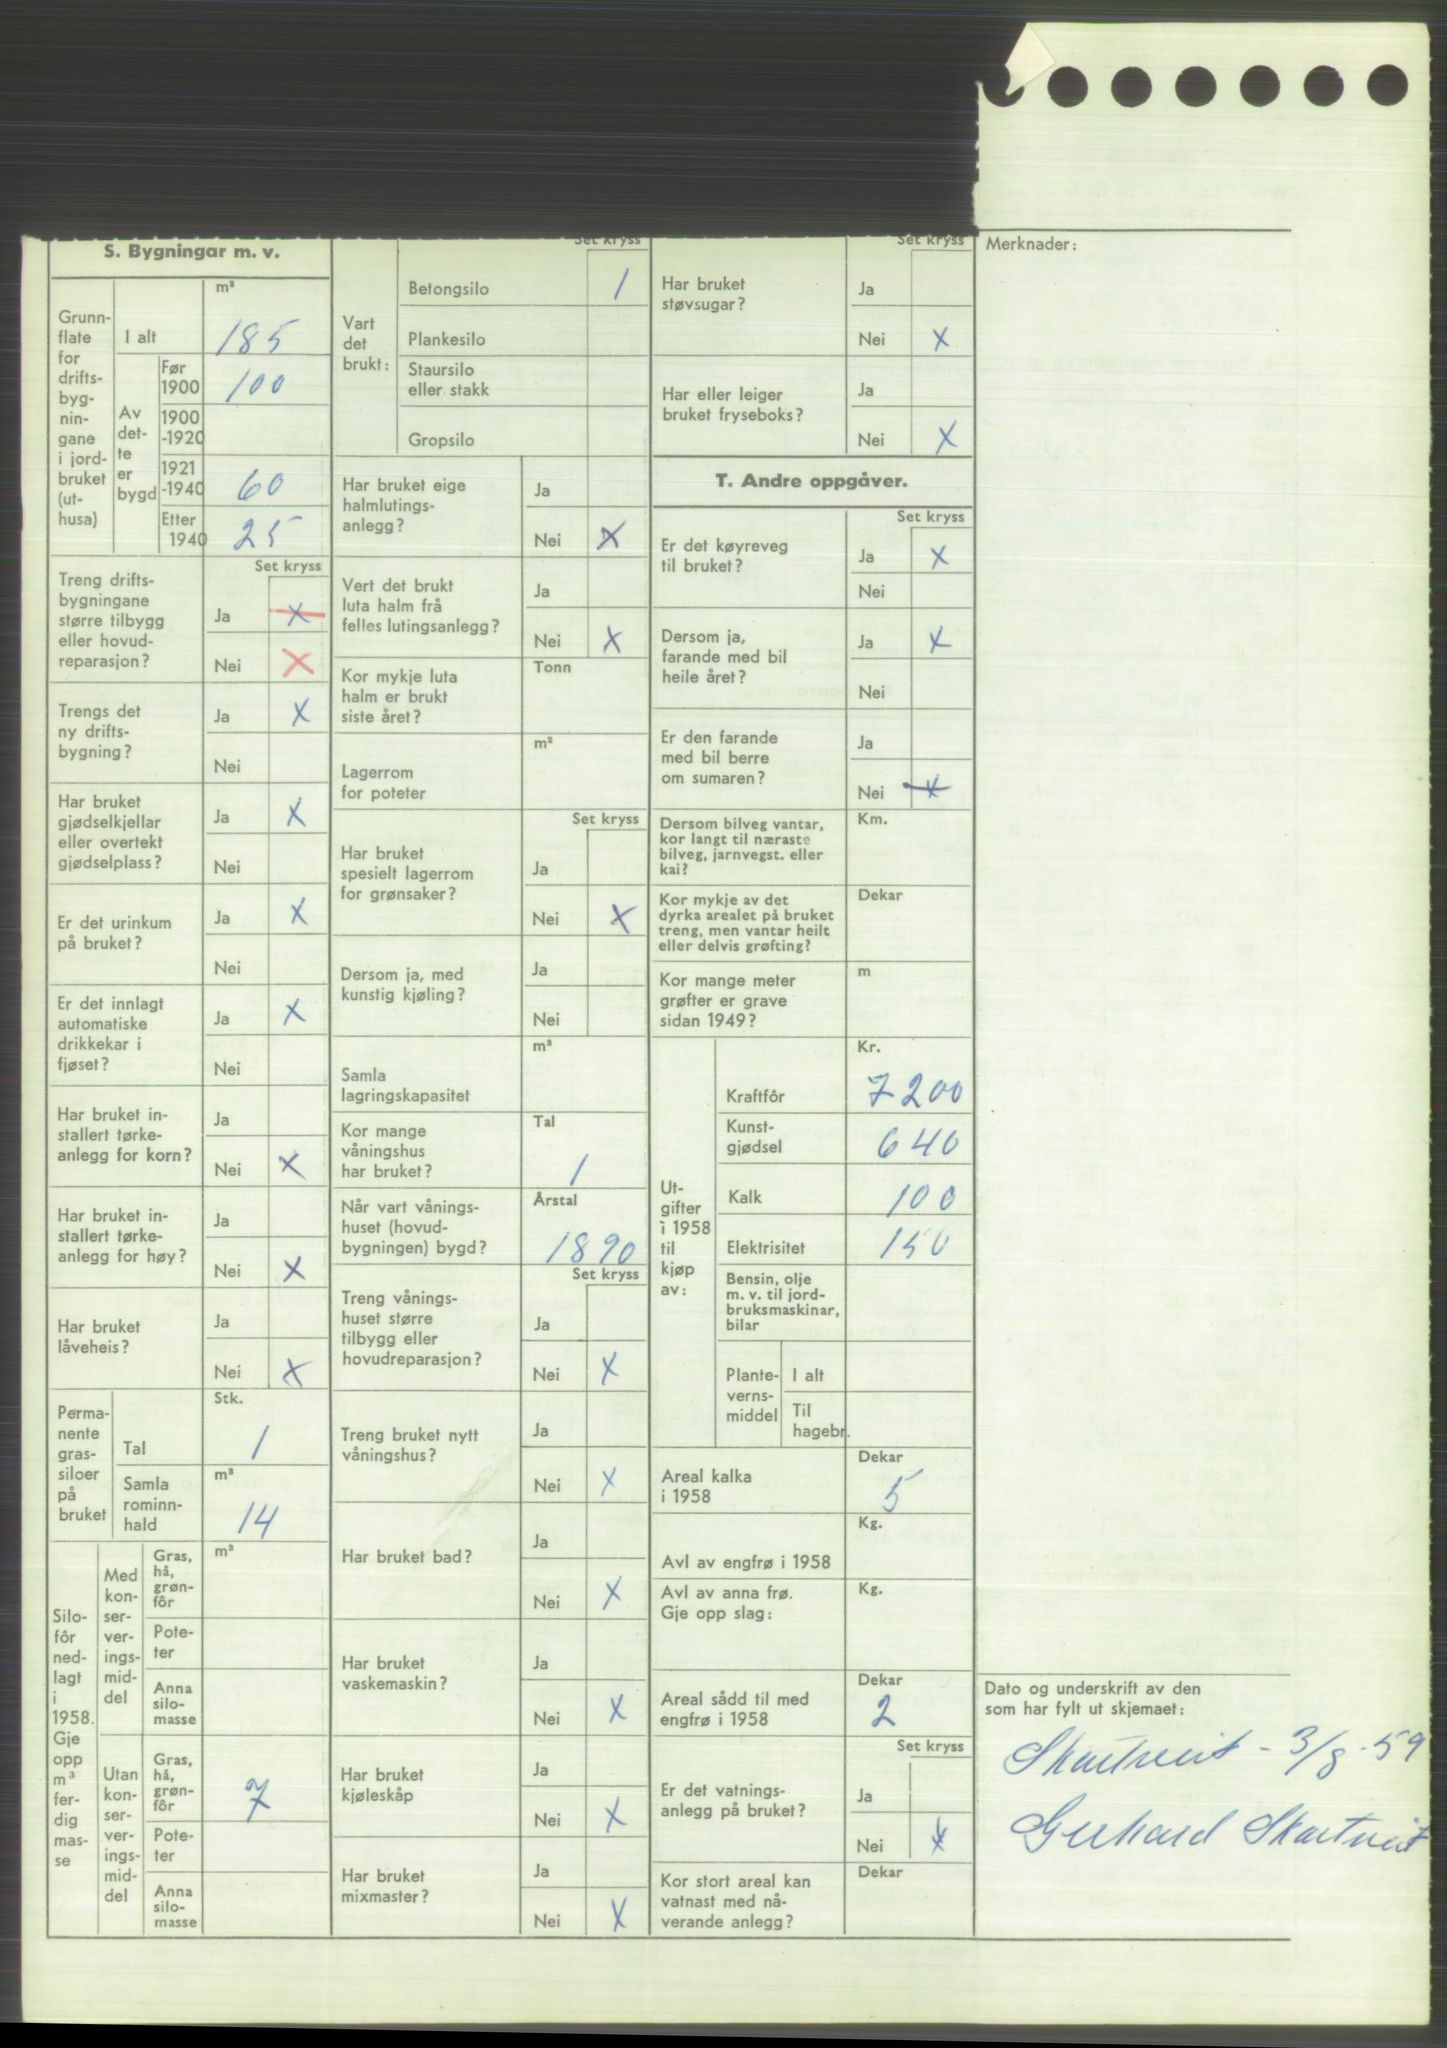 S. Bygningar m. v.
m²
Grunn-
flate
for
drifts-
byg-
nin-
gane
i jord-
bruket
(ut-
husa)
I alt
185
Av
det-
te
er
bygd
Før
1900
100
1900
-1920
1921
-1940
60
Etter
1940
25
Set kryss
Treng drifts-
bygningane
større tilbygg
eller hovud-
reparasjon?
Ja
X
Nei
X
Trengs det
ny drifts-
bygning?
Ja
X
Nei
Har bruket
gjødselkjellar
eller overtekt
gjødselplass?
Ja
X
Nei
Er det urinkum
på bruket?
Ja
X
Nei
Er det innlagt
automatiske
drikkekar i
fjøset?
Ja
X
Nei
Har bruket in-
stallert tørke-
anlegg for korn?
Ja
Nei
X
Har bruket in-
stallert tørke-
anlegg for høy?
Ja
Nei
X
Har bruket
låveheis?
Ja
Nei
X
Perma-
nente
gras-
siloer
på
bruket
Stk.
Tal
1
Samla
rominn-
hald
m³
14
Silo-
fôr
ned-
lagt
i
1958.
Gje
opp
m³
fer-
dig
mas-
se
Med
kon-
ser-
ver-
ings-
mid-
del
Gras,
hå,
grøn-
fôr
m³
Pote-
ter
Anna
silo-
masse
Utan
kon-
ser-
ver-
ings-
mid-
del
Gras,
hå,
grøn-
fôr
7
Pote-
ter
Anna
silo-
masse
Set kryss
Vart
det
brukt:
Betongsilo
1
Plankesilo
Staursilo
eller stakk
Gropsilo
Har bruket eige
halmlutings-
anlegg?
Ja
Nei
X
Vert det brukt
luta halm frå
felles lutingsanlegg?
Ja
Nei
X
Kor mykje luta
halm er brukt
siste året?
Tonn
Lagerrom
for poteter
m²
Set kryss
Har bruket
spesielt lagerrom
for grønsaker?
Ja
Nei
X
Dersom ja, med
kunstig kjøling?
Ja
Nei
Samla
lagringskapasitet
m³
Kor mange
våningshus
har bruket?
Tal
1
Når vart vånings-
huset (hovud-
bygningen) bygd?
Årstal
1890
Set kryss
Treng vånings-
huset større
tilbygg eller
hovudreparasjon?
Ja
Nei
X
Treng bruket nytt
våningshus?
Ja
Nei
X
Har bruket bad?
Ja
Nei
X
Har bruket
vaskemaskin?
Ja
Nei
X
Har bruket
kjøleskåp
Ja
Nei
X
Har bruket
mixmaster?
Ja
Nei
X
Set kryss
Har bruket
støvsugar?
Ja
Nei
X
Har eller leiger
bruket fryseboks?
Ja
Nei
X
T. Andre oppgåver.
Set kryss
Er det køyreveg
til bruket?
Ja
X
Nei
Dersom ja,
farande med bil
heile året?
Ja
X
Nei
Er den farande
med bil berre
om sumaren?
Ja
Nei
X
Dersom bilveg vantar,
kor langt til næraste
bilveg, jarnvegst. eller
kai?
Km.
Kor mykje av det
dyrka arealet på bruket
treng, men vantar heilt
eller delvis grøfting?
Dekar
Kor mange meter
grøfter er grave
sidan 1949?
m
Ut-
gifter
i 1958
til
kjøp
av:
Kr.
Kraftfôr
7200
Kunst-
gjødsel
640
Kalk
100
Elektrisitet
150
Bensin, olje
m. v. til jord-
bruksmaskinar,
bilar
Plante-
verns-
middel
I alt
Til
hagebr.
Areal kalka
i 1958
Dekar
5
Avl av engfrø i 1958
Kg.
Avl av anna frø.
Gje opp slag:
Kg.
Areal sådd til med
engfrø i 1958
Dekar
2
Set kryss
Er det vatnings-
anlegg på bruket?
Ja
Nei
X
Kor stort areal kan
vatnast med nå-
verande anlegg?
Dekar
Merknader:
Dato og underskrift av den
som har fylt ut skjemaet:
Skartveit - 3/8 - 59
Gerhard Skartveit